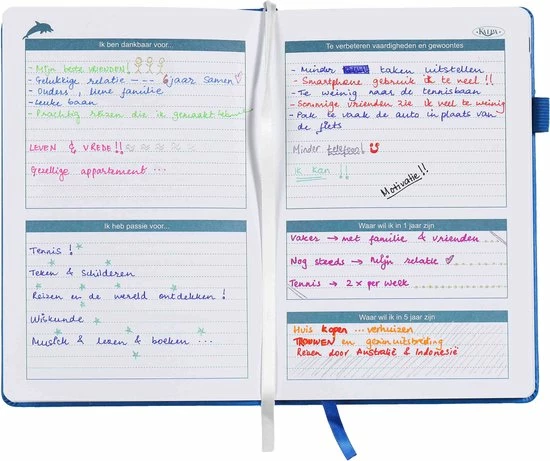 Ik ben dankbaar voor...
- Mijn beste VRIENDEN!
- Gelukkige relatie --- 6 jaar samen
- Ouders, lieve familie
- Leuke baan
- Prachtig reizen die ik gemaakt
LEVEN & VREDE!!
Gezellige appartement ...
Ik heb passie voor...
Tennis!
Teken & Schilderen
Reizen en de wereld ontdekken!
Wiskunde
Musick & lezen & boeken ...
KALPA
Te verbeteren vaardigheden en gewoontes
- Minder taken uitstellen
- Smartphone gebruik ik te veel!!
- Te weinig naar de tennisbaan
- Sommige vrienden zie ik veel te weinig
- Pak te vaak de auto in plaats van
de fiets
Minder telefoon!
Ik kan !!
Motivatie!!
Waar wil ik in 1 jaar zijn
Vaker → met familie & vrienden
Nog steeds → mijn relatie
Tennis → 2 x per week
Waar wil ik in 5 jaar zijn
Huis kopen ... verhuizen
TROUWEN en gezinuitbreiding
Reizen door Australië & Indonesië